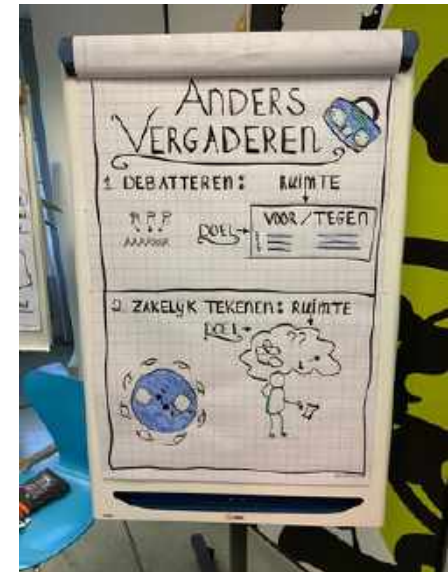 ANDERS
VERGADEREN
1. DEBATTEREN: RUIMTE
DOEL
VOOR / TEGEN
2. ZAKELIJK TEKENEN: RUIMTE
DOEL
??